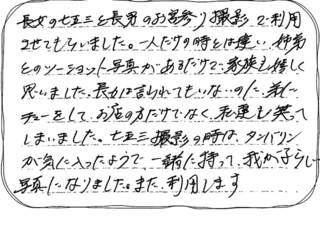 長女の七五三と長男のお宮参り撮影で利用
させてもらいました。一人だけの時とは違い、姉弟
とのツーショット写真があるだけで、家族も嬉しく
思いました。長女は言われてもいないのに、弟に
チューをして、お店の方だけでなく、私達も笑って
しまいました。七五三撮影の時は、タンバリン
が気に入ったようで、一緒に持って、我が子らしい
写真になりました。また、利用します